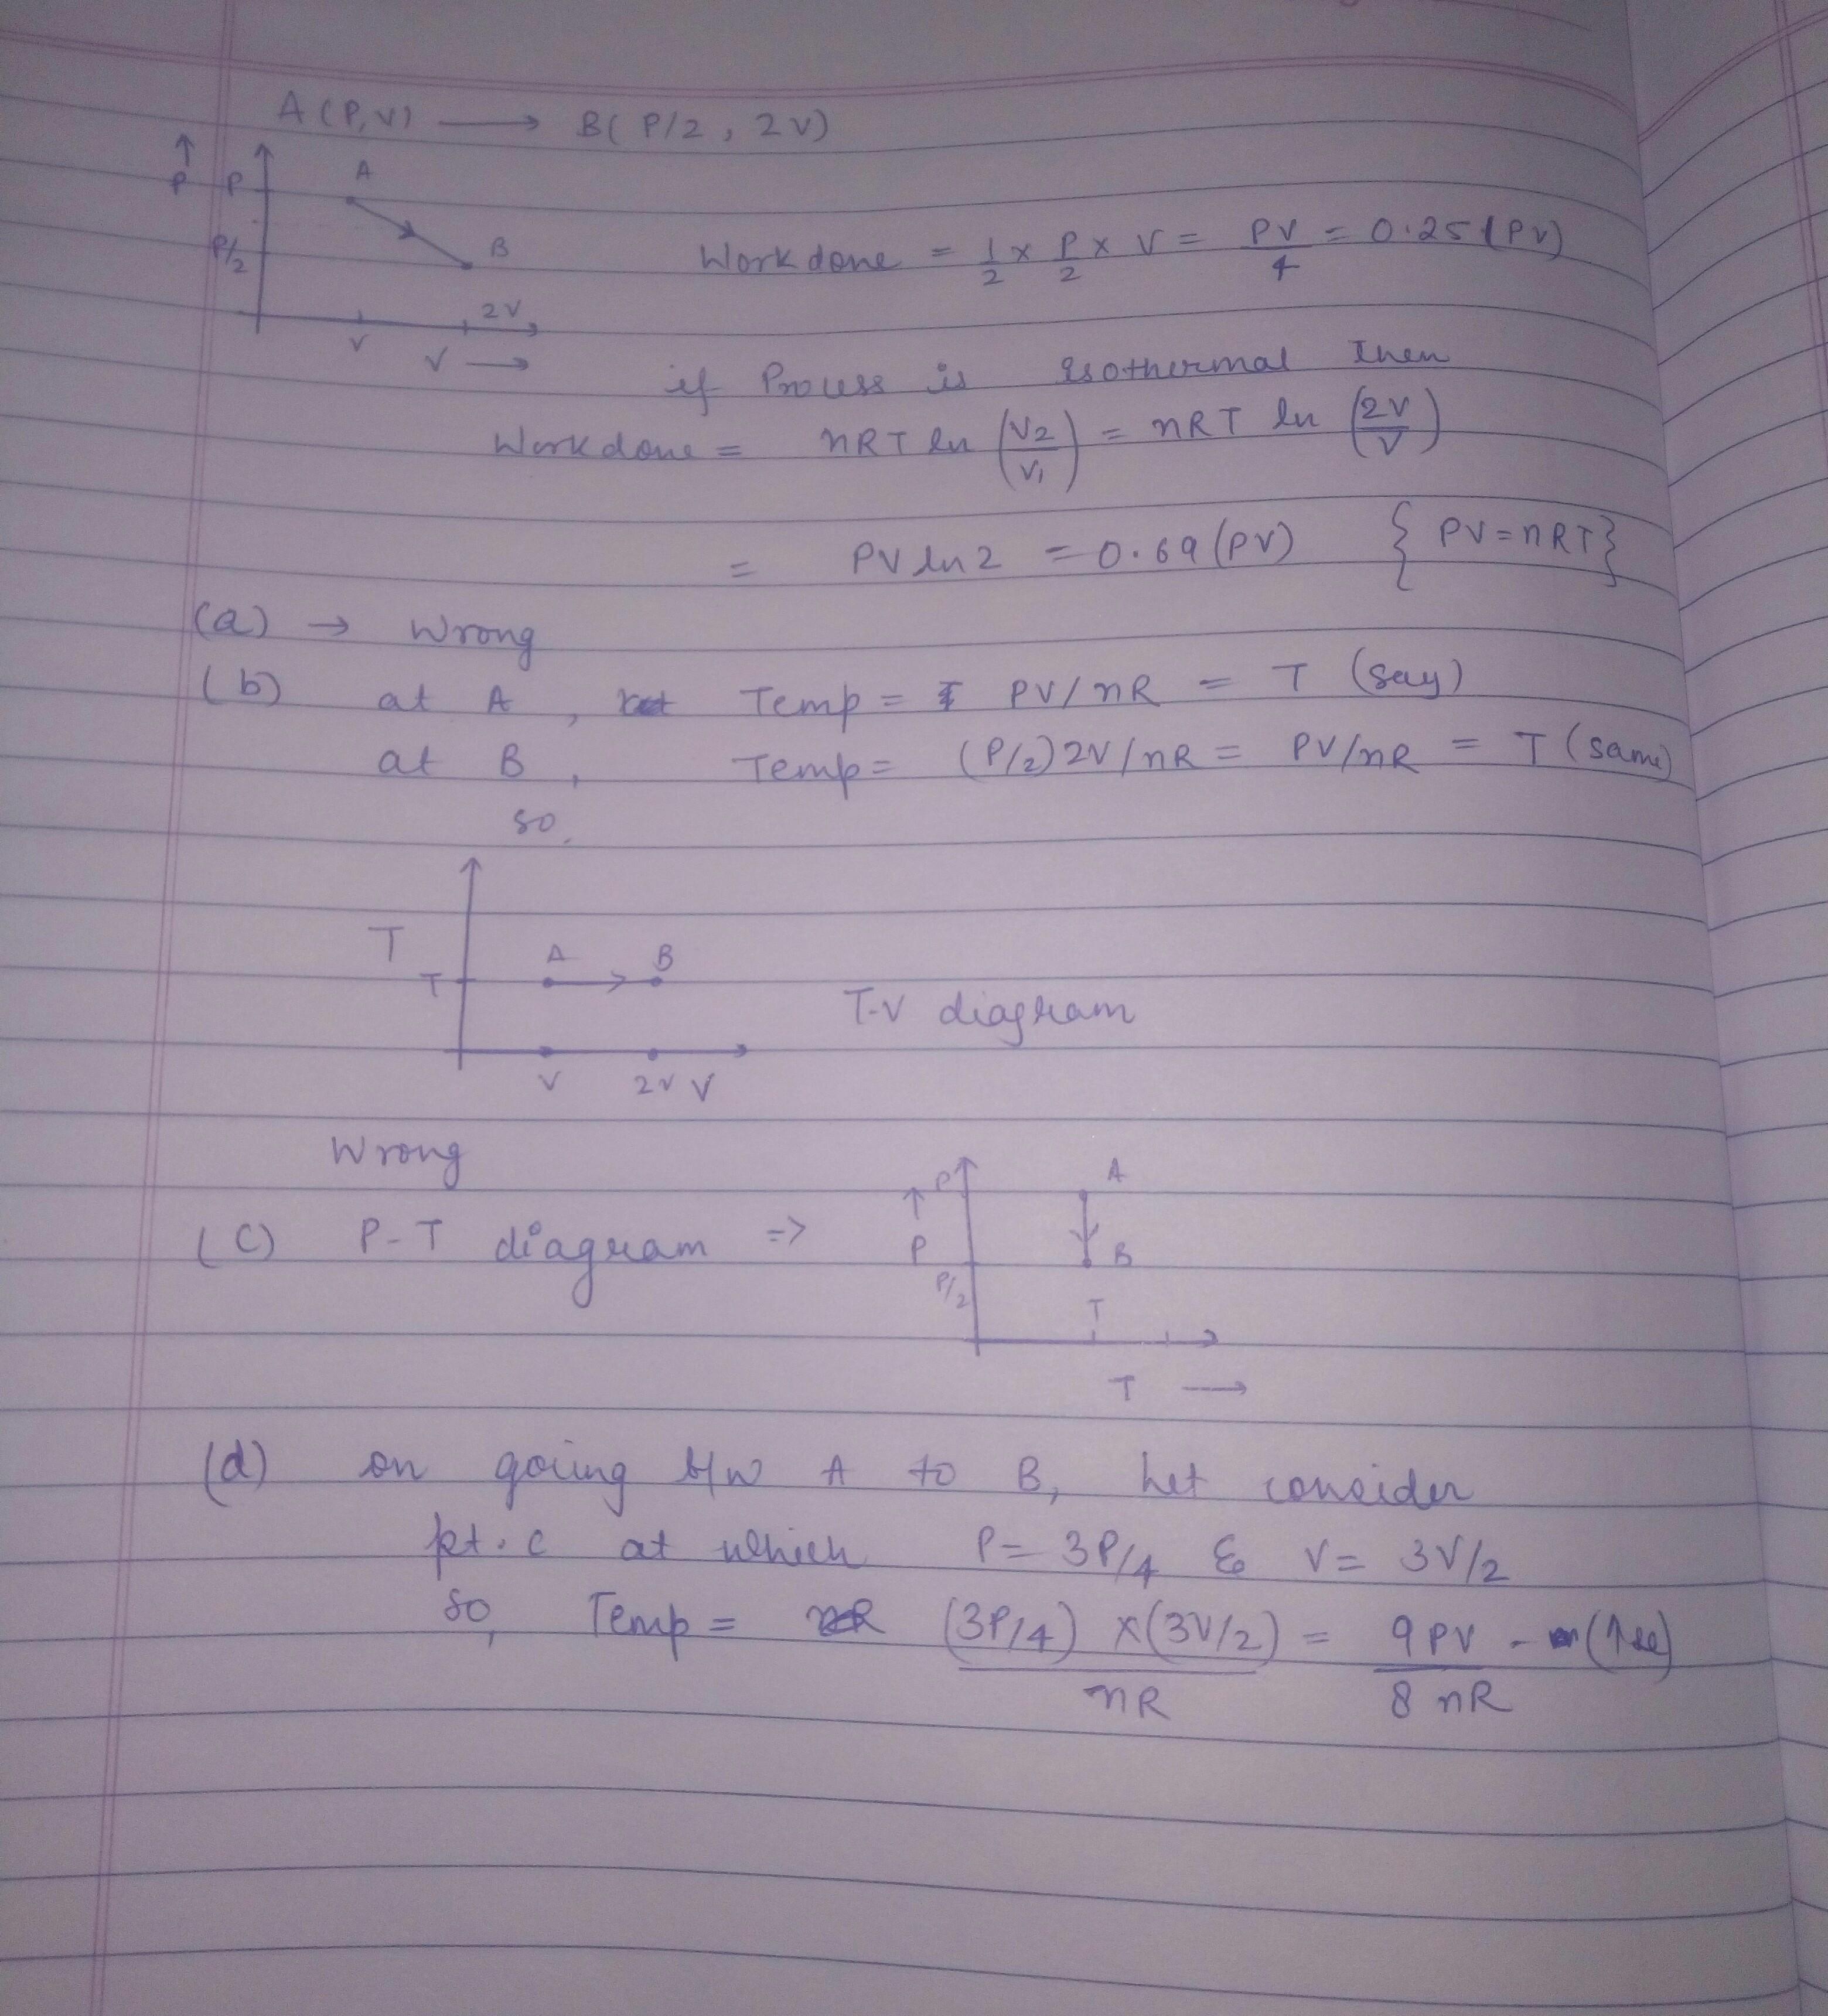 A(P,V) → B( P/2 , 2V)
↑
P
P
A
P/2
B
2V
V
V →
Work done = 1/2 x P/2 x V = PV/4 = 0.25(PV)
if Process is Isothermal then
Work done = nRT ln (V2/V1) = nRT ln (2V/V)
= PV ln2 = 0.69(PV) { PV=nRT}
(a) → Wrong
(b) at A , Temp = PV/nR = T (say)
at B , Temp = (P/2)2V/nR = PV/nR = T (same)
so,
T
T
A
B
V
2V
V
T-V diagram
Wrong
(C) P-T diagram =>
↑
P
P
A
P/2
B
T
T →
(d) on going b/w A to B, let consider
pt. C at which P= 3P/4 & V= 3V/2
so, Temp = (3P/4) x(3V/2)/nR = 9PV/8nR - (↑se)